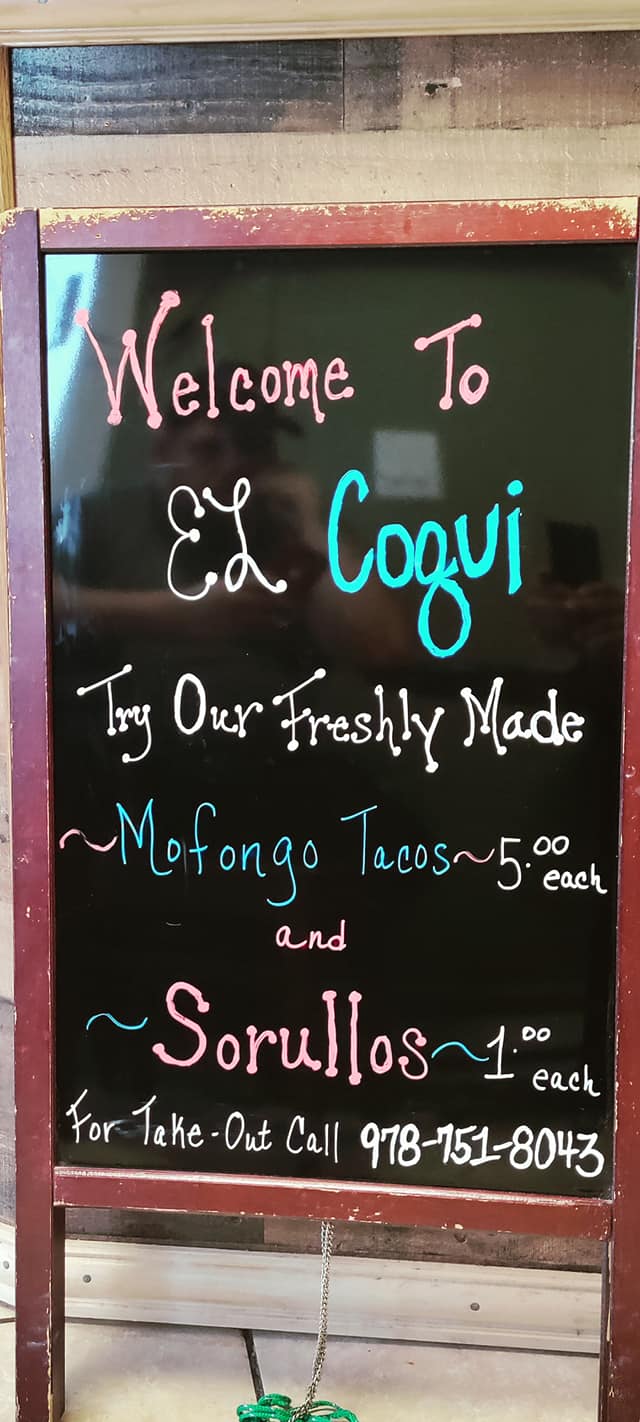 Welcome To
EL Coqui
Try Our Freshly Made
~Mofongo Tacos~5.00 each
and
~Sorullos~1.00 each
For Take-Out Call 978-751-8043